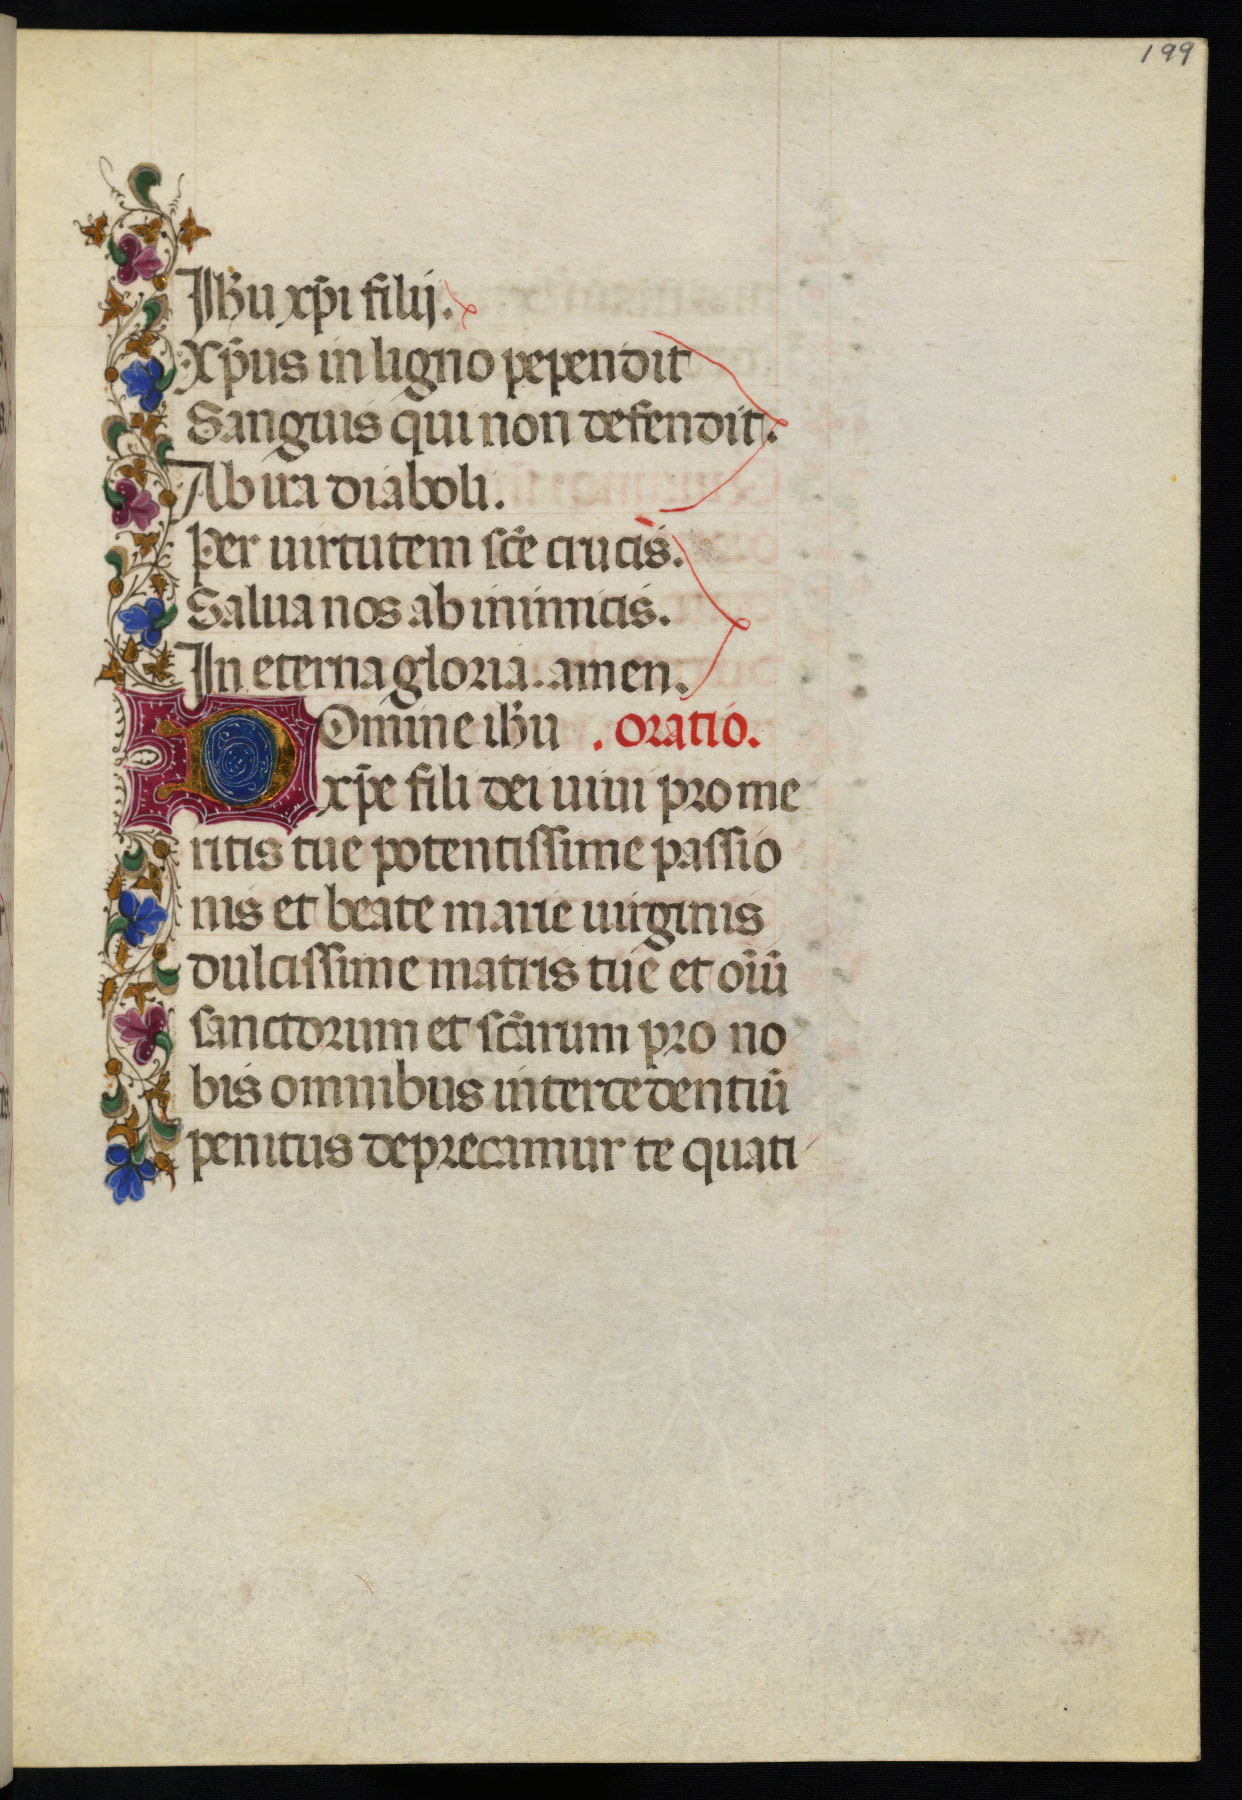 199
Jhu xp̄i filij.
Xp̄us in ligno pependit
Sanguis qui non defendit.
Ab ira diaboli.
Per uirtutem sc̄e crucis.
Salua nos ab inimicis.
In eterna gloria. amen.
Domine ih̄u . oratio.
xp̄e fili dei uiui pro me
ritis tue potentissime passio
nis et beate marie uirginis
dulcissime matris tue et oi̅u̅
sanctorum et sc̄arum pro no
bis omnibus intercedentiū
penitus deprecamur te quati